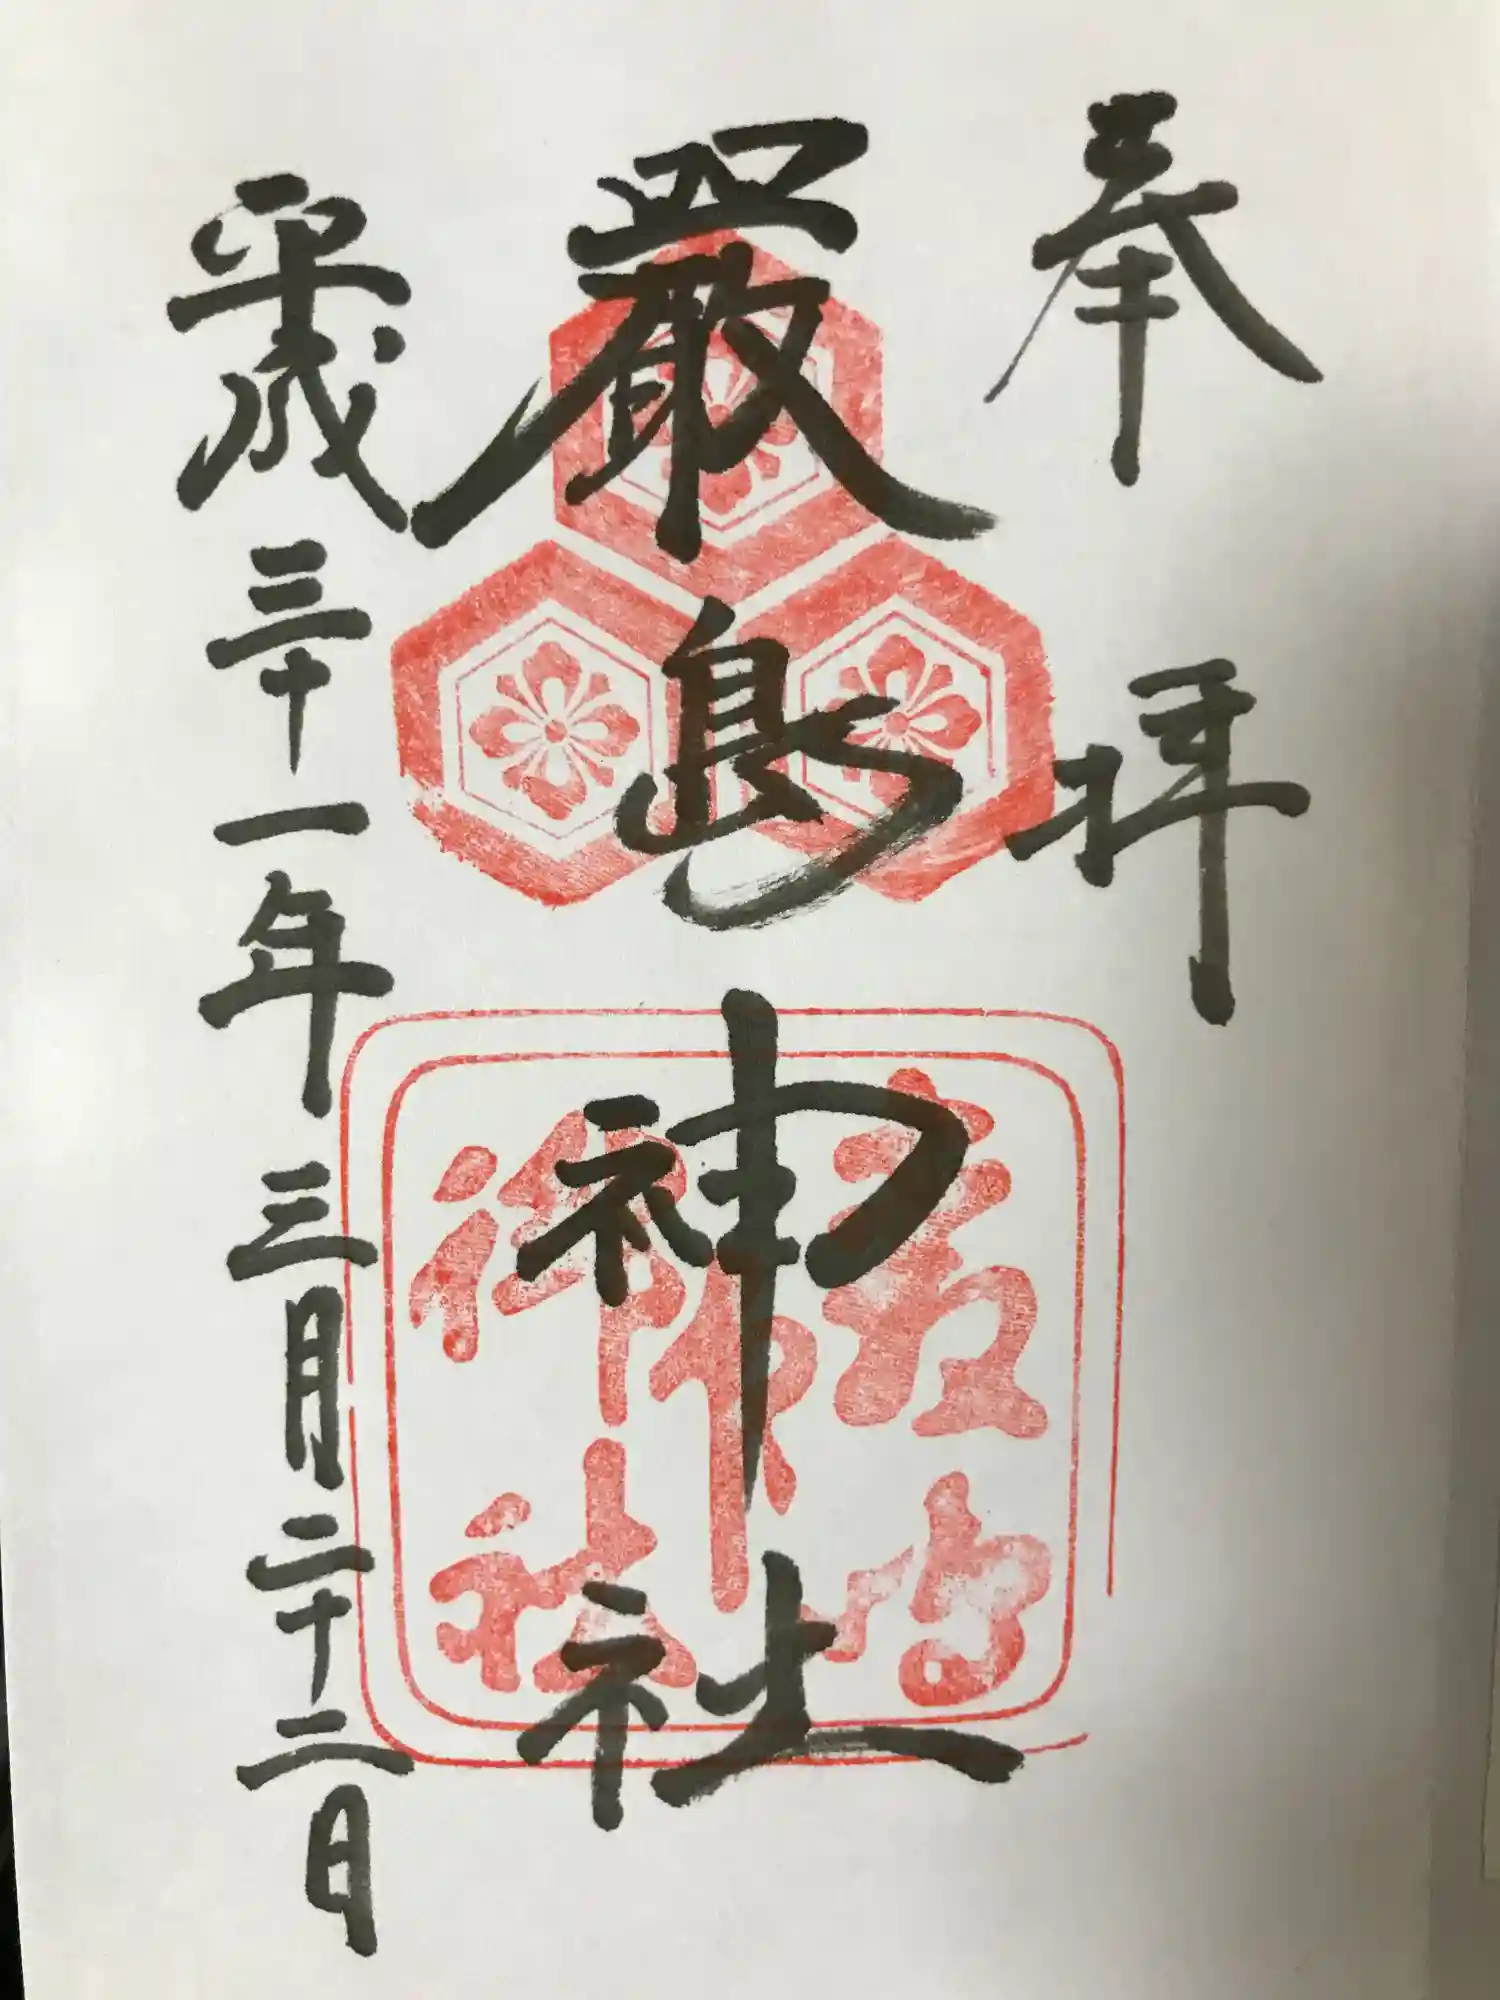 奉拝
嚴島神社
平成三十一年三月二十二日